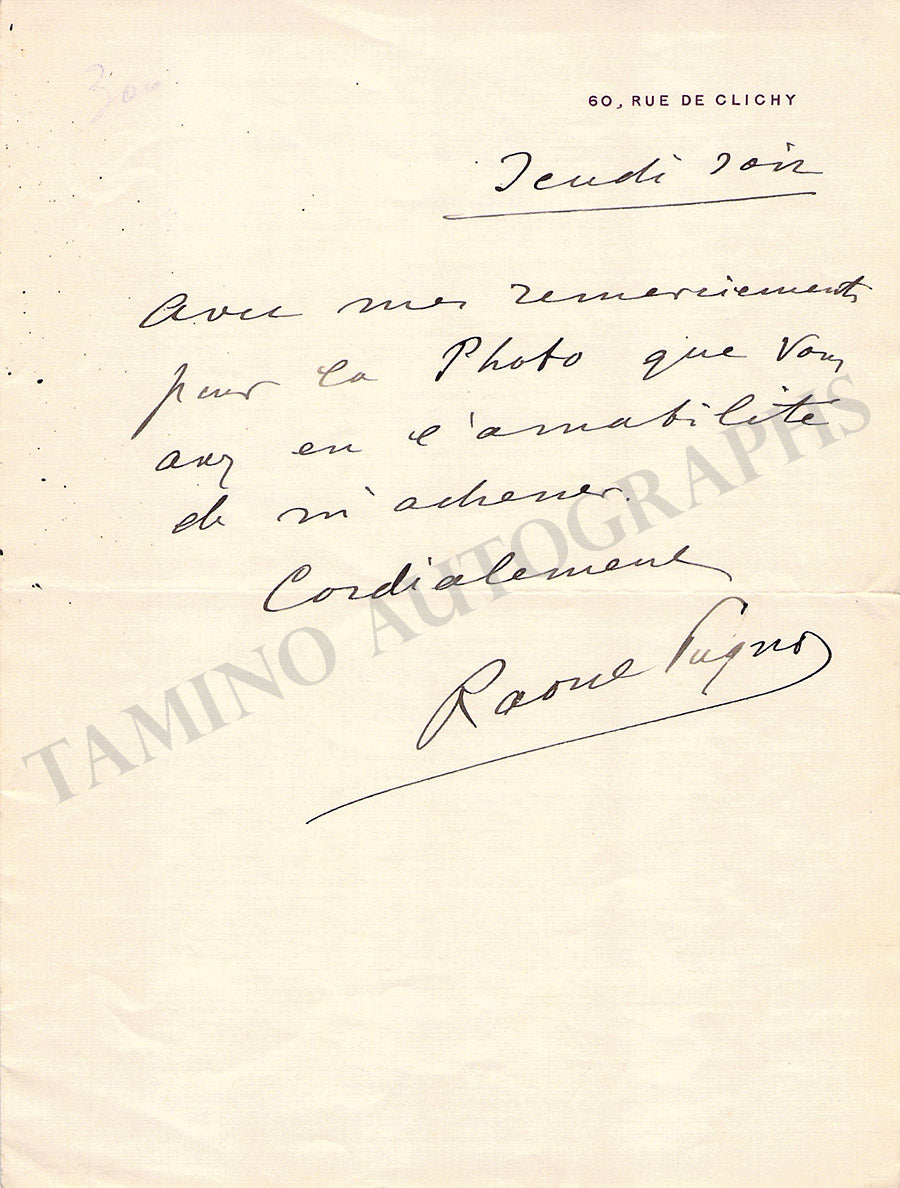 300
60, RUE DE CLICHY
Jeudi soir
Avec mes remerciements
pour la Photo que Vous
avez eu l'amabilité
de m'achever.
Cordialement
Raoul Pugno
TAMINO AUTOGRAPHS